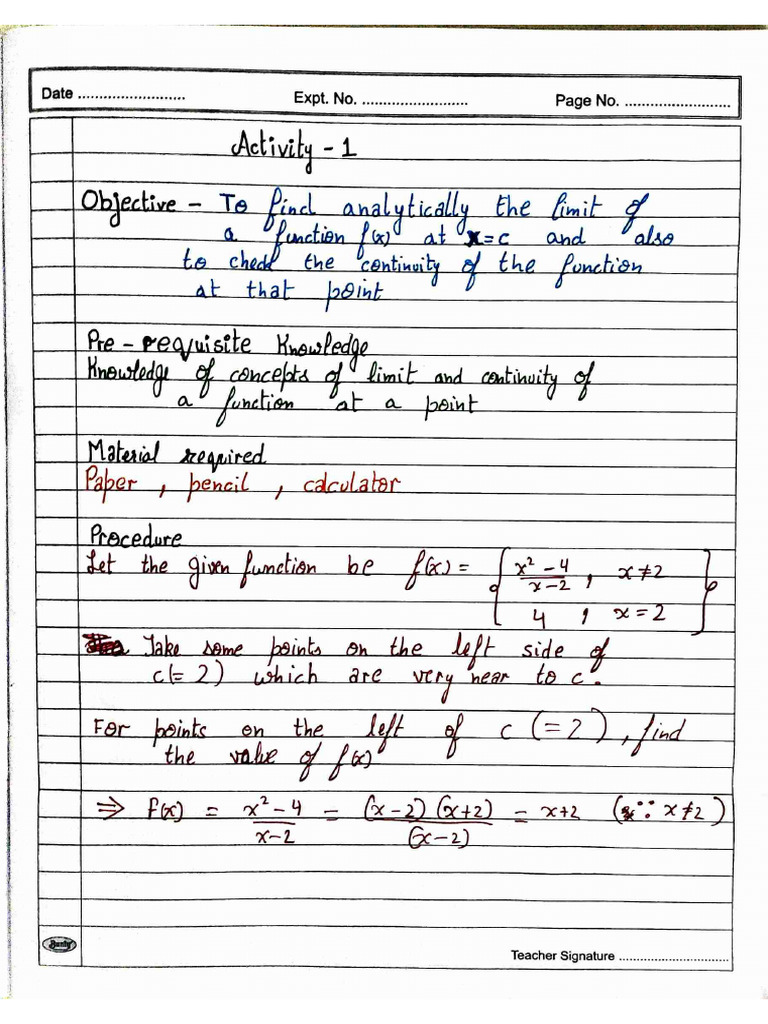 Date ......................... Expt. No. ......................... Page No. .........................
Activity - 1
Objective - To find analytically the limit of
a function f(x) at x=c and also
to check the continuity of the function
at that point
Pre-requisite Knowledge
Knowledge of concepts of limit and continuity of
a function at a point
Material required
Paper , pencil , calculator
Procedure
Let the given function be f(x) = { (x² - 4)/(x-2) , x≠2
4 , x=2 }
Take some points on the left side of
c(=2) which are very near to c.
For points on the left of c (=2), find
the value of f(x)
⇒ f(x) = (x² - 4)/(x-2) = (x-2)(x+2)/(x-2) = x+2 (∵ x≠2)
Bunty
Teacher Signature .........................